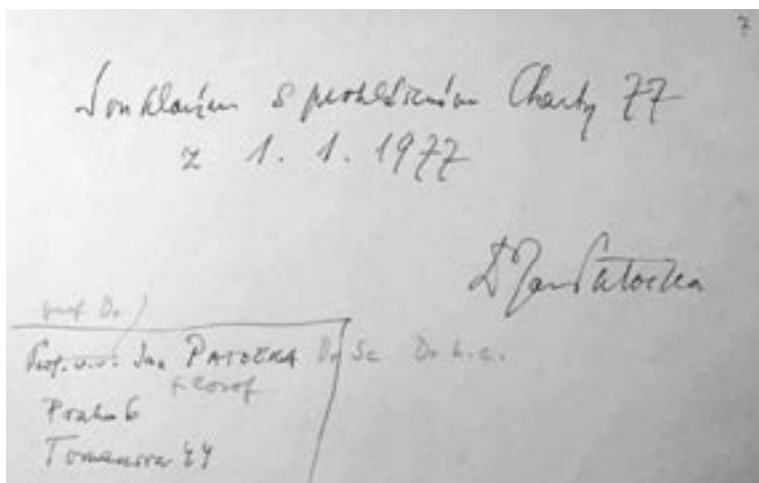 7
Souhlasím s prohlášením Charty 77
z 1. 1. 1977
Dr Jan Patočka
prof Dr
Prof. v.v. Jan PATOČKA Dr Sc Dr h.c.
Filosof
Praha 6
Tomanova